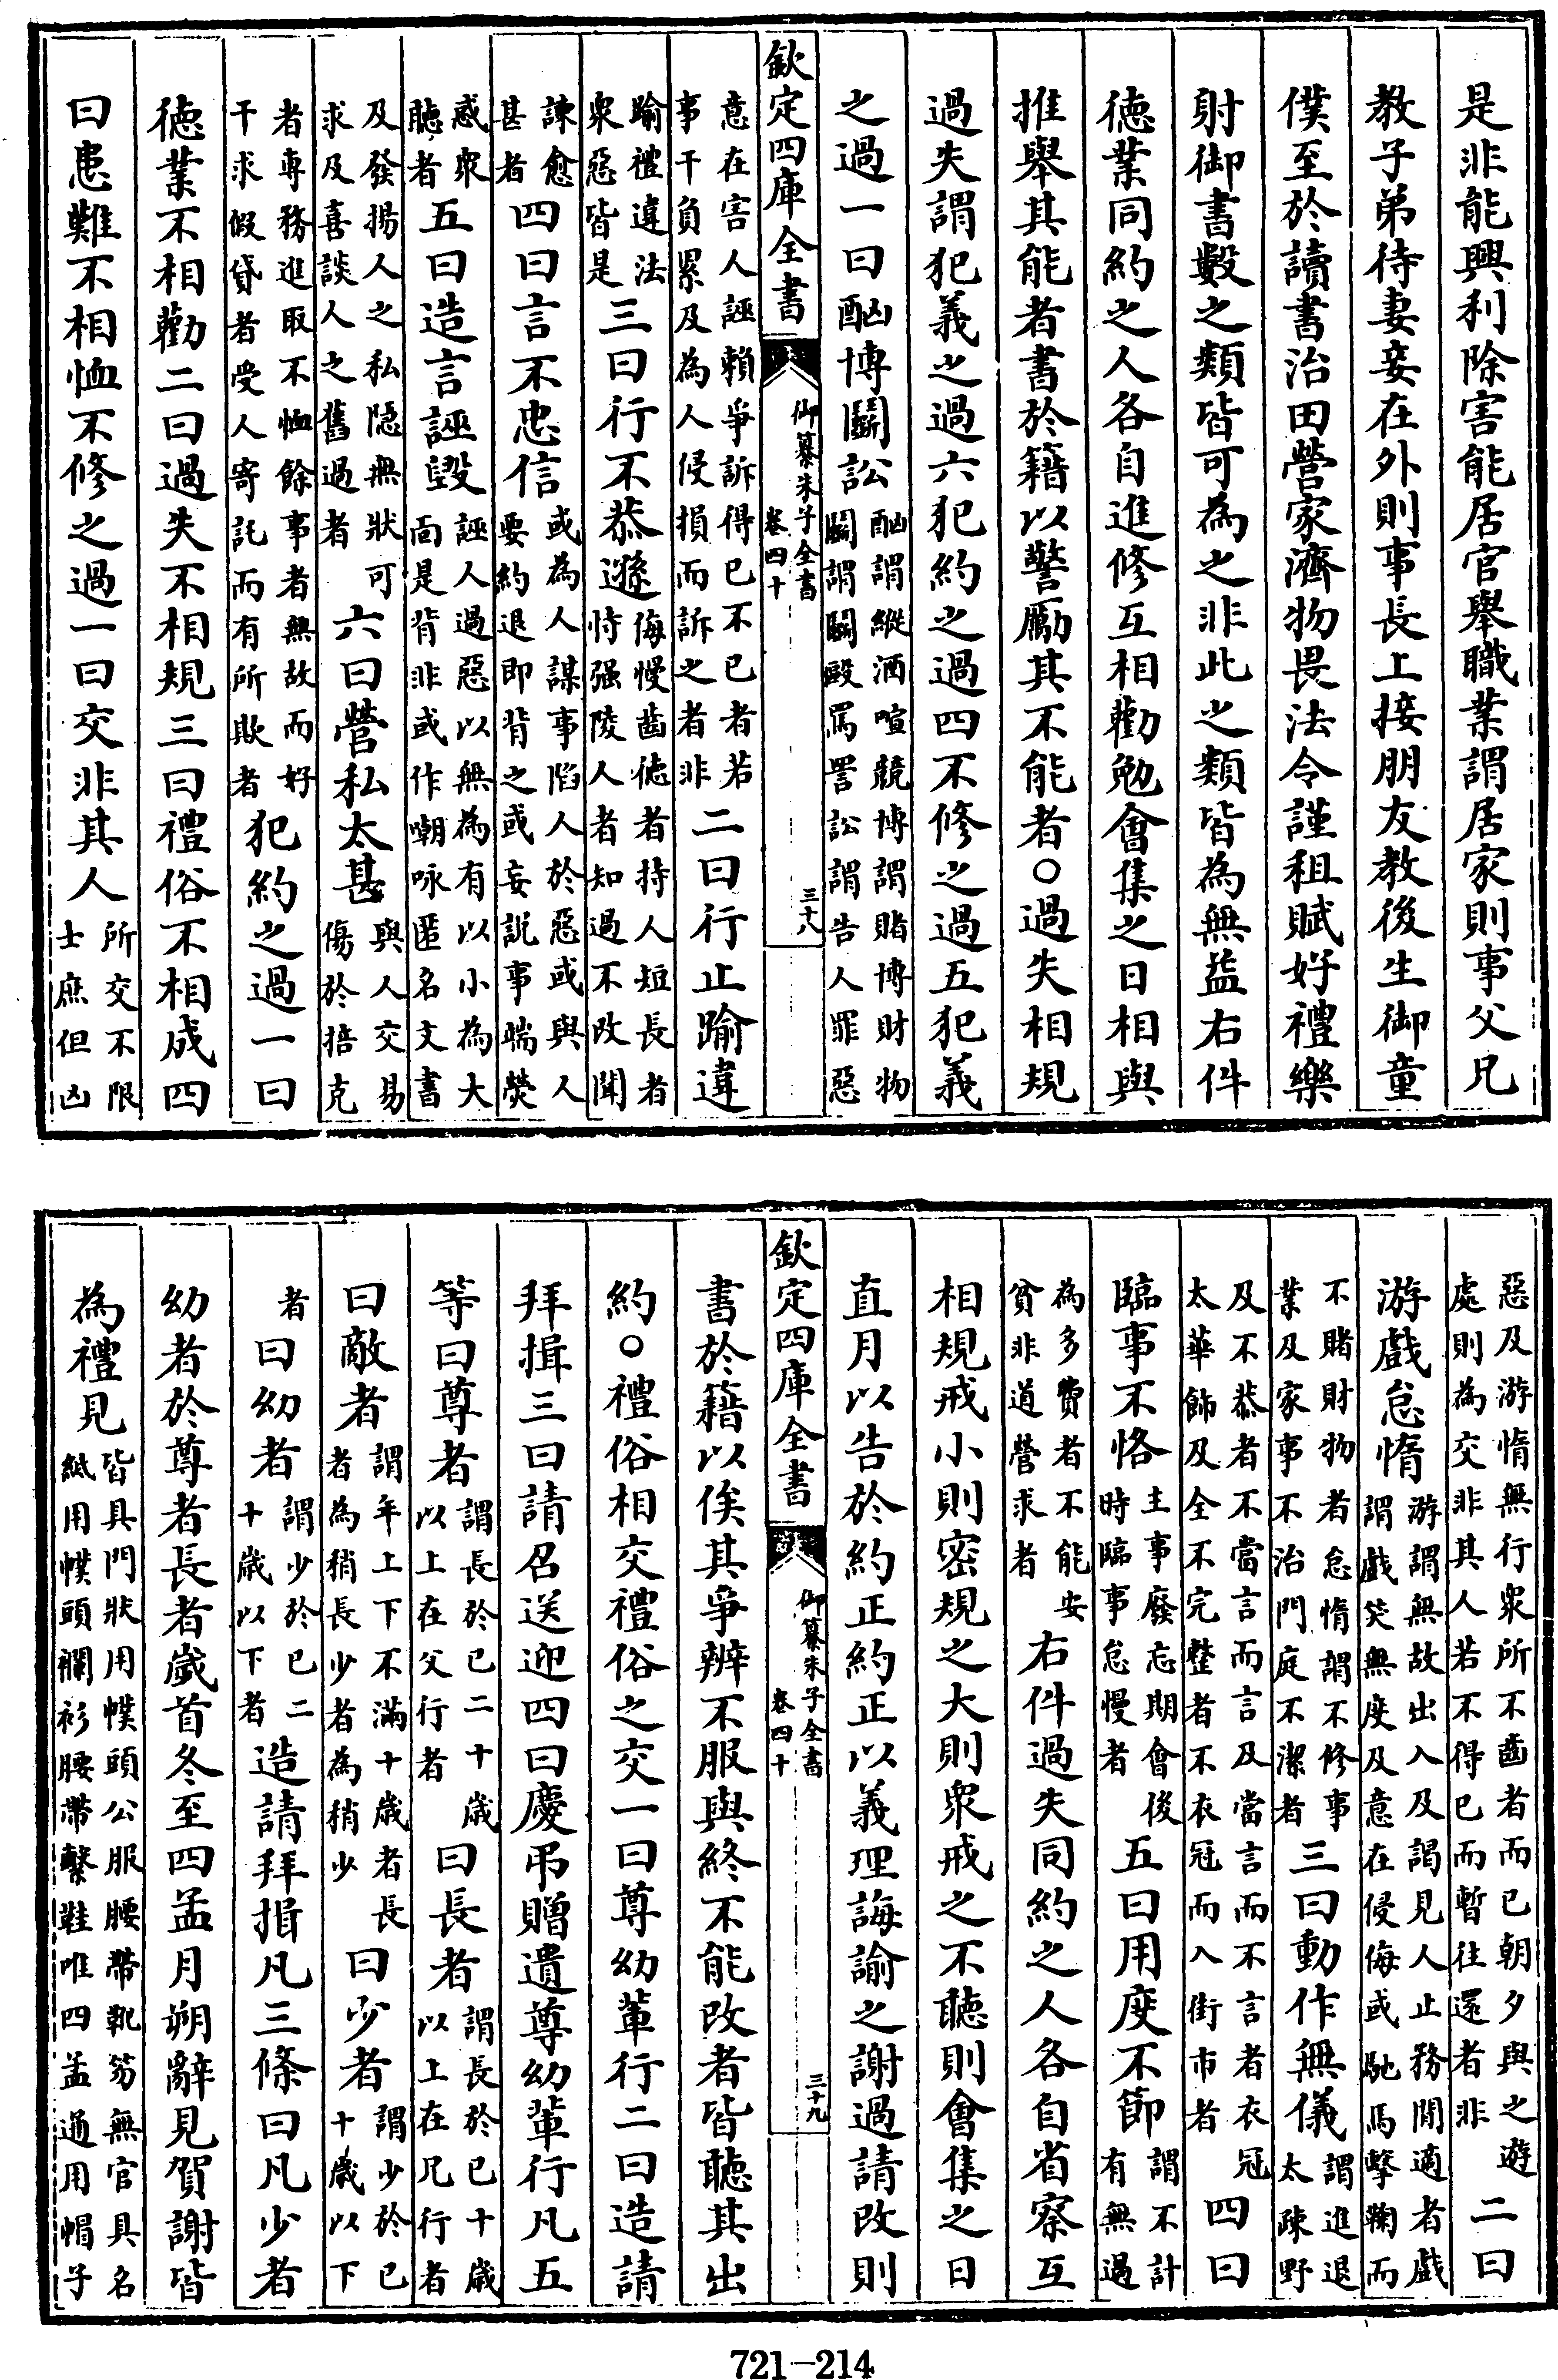 是非能興利除害能居官舉職業謂居家則事父兄
教子弟待妻妾在外則事長上接朋友教後生御童
僕至於讀書治田營家濟物畏法令謹租賦好禮樂
射御書數之類皆可為之非此之類皆為無益右件
德業同約之人各自進修互相勸勉會集之日相與
推舉其能者書於籍以警勵其不能者○過失相規
過失謂犯義之過六犯約之過四不修之過五犯義
之過一曰酗博鬬訟酗謂縱酒喧競博謂賭博財物鬬謂鬬毆罵詈訟謂告人罪惡
欽定四庫全書
御纂朱子全書
卷四十
三十八
意在害人誣賴爭訴得已不已者若事干負累及為人侵損而訴之者非二曰行止踰違
踰禮違法眾惡皆是三曰行不恭遜侮慢齒德者持人短長者恃强陵人者知過不改聞
諫愈甚者四曰言不忠信或為人謀事陷人於惡或與人要約退即背之或妄說事端熒
惑眾聽者五曰造言誣毀誣人過惡以無為有以小為大面是背非或作嘲咏匿名文書
及發揚人之私隱無狀可求及喜談人之舊過者六曰營私太甚與人交易傷於掊克
者專務進取不恤餘事者無故而好干求假貸者受人寄託而有所欺者犯約之過一曰
德業不相勸二曰過失不相規三曰禮俗不相成四
曰患難不相恤不修之過一曰交非其人所交不限士庶但凶
惡及游惰無行眾所不齒者而已朝夕與之遊處則為交非其人若不得已而暫往還者非二曰
游戲怠惰游謂無故出入及謁見人止務閒適者戲謂戲笑無度及意在侵侮或馳馬擊鞠而
不賭財物者怠惰謂不修事業及家事不治門庭不潔者三曰動作無儀謂進退太疎野
及不恭者不當言而言及當言而不言者衣冠太華飾及全不完整者不衣冠而入街市者四曰
臨事不恪主事廢忘期會後時臨事怠慢者五曰用度不節謂不計有無過
為多費者不能安貧非道營求者右件過失同約之人各自省察互
相規戒小則密規之大則眾戒之不聽則會集之日
直月以告於約正約正以義理誨諭之謝過請改則
欽定四庫全書
御纂朱子全書
卷四十
三十九
書於籍以俟其爭辨不服與終不能改者皆聽其出
約○禮俗相交禮俗之交一曰尊幼輩行二曰造請
拜揖三曰請召送迎四曰慶弔贈遺尊幼輩行凡五
等曰尊者謂長於己二十歲以上在父行者曰長者謂長於己十歲以上在兄行者
曰敵者謂年上下不滿十歲者長者為稍長少者為稍少曰少者謂少於己十歲以下
者曰幼者謂少於己二十歲以下者造請拜揖凡三條曰凡少者
幼者於尊者長者歲首冬至四孟月朔辭見賀謝皆
為禮見皆具門狀用幞頭公服腰帶靴笏無官具名紙用幞頭襴衫腰帶繫鞋唯四孟通用帽子
721-214